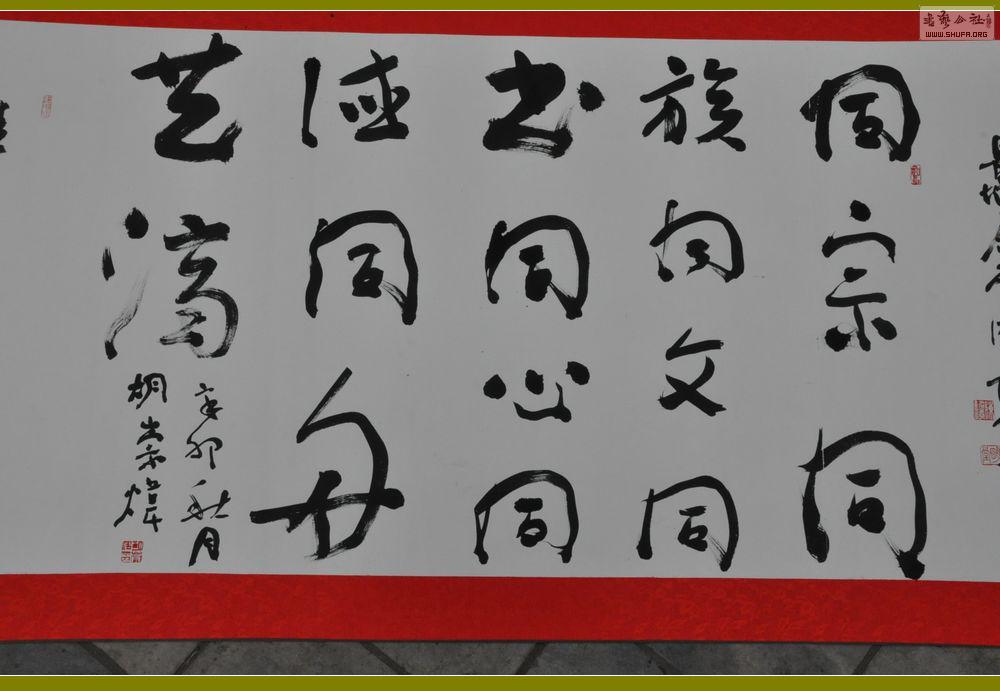 同宗同
族同文同
书同心同
德同舟
共济
辛卯秋月
胡崇炜
书艺公社
WWW.SHUFA.ORG